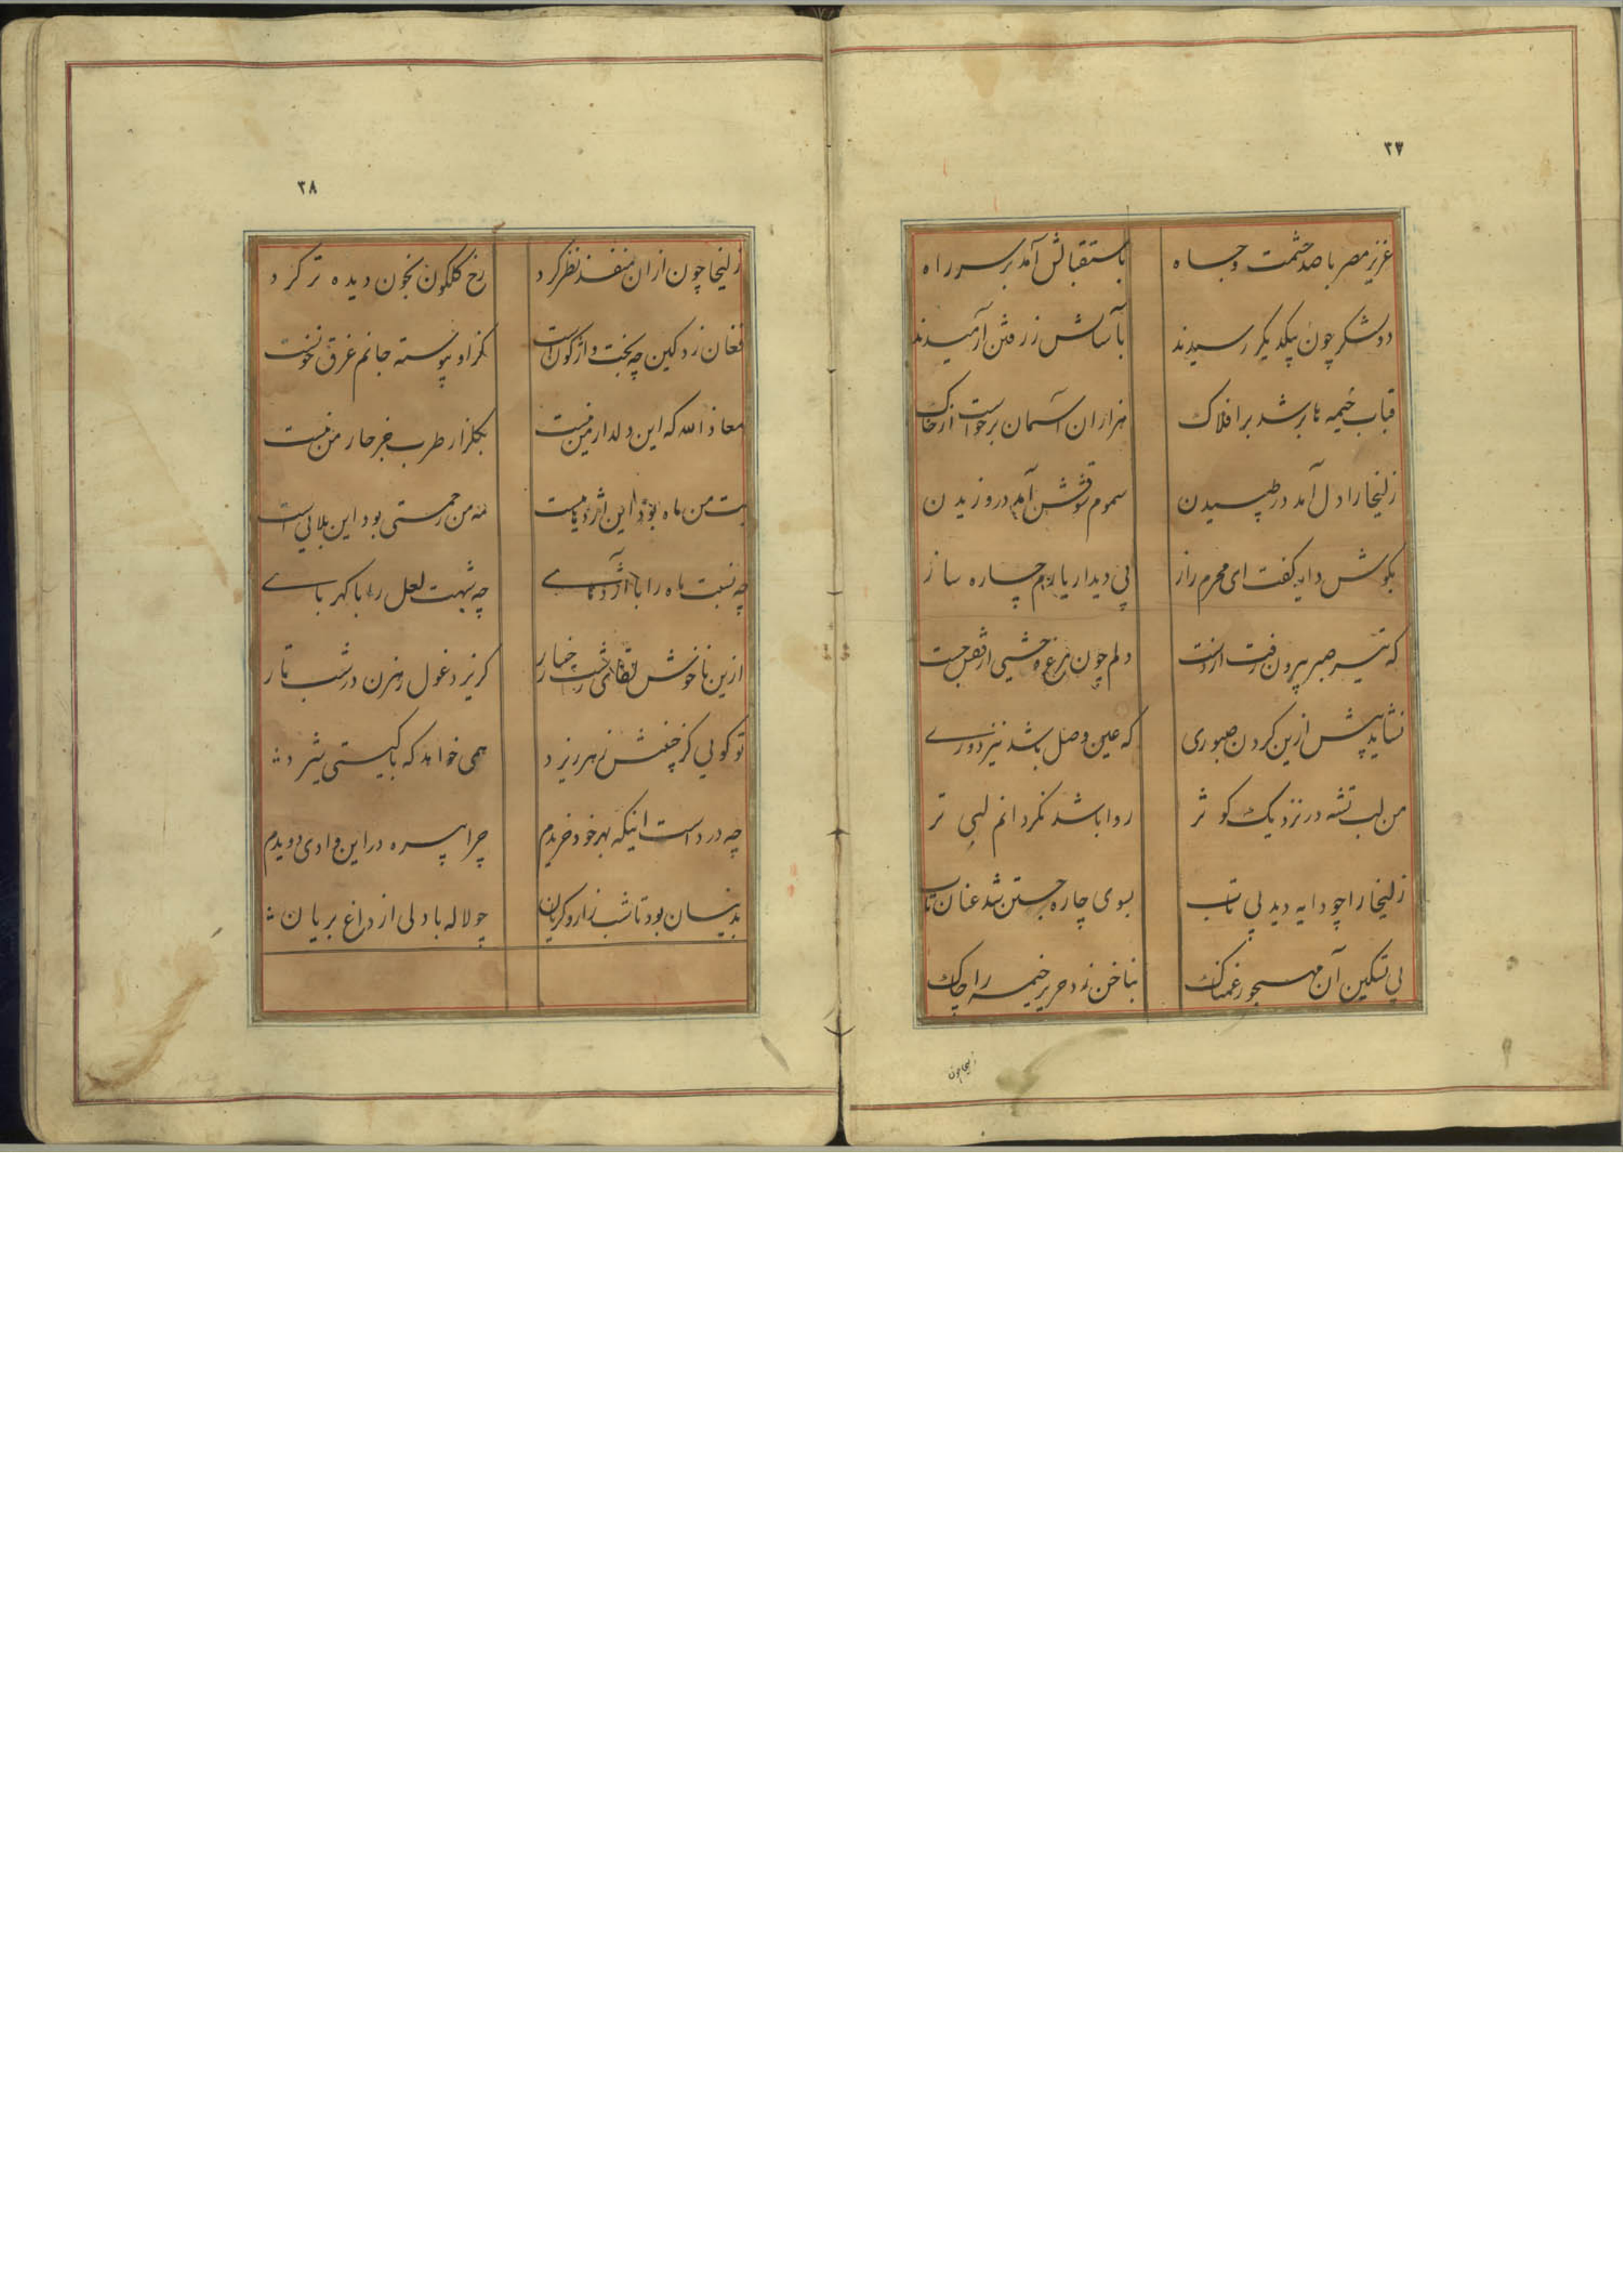 ۳۷
عزیز مصر با صد حشمت و جاه باستقبالش آمد بر سر راه
دو لشکر چون بیکدیگر رسیدند بآسایش ز رفتن آرمیدند
قباب خیمه ها بر شد بر افلاک هزاران آسمان برخواست از خاک
زلیخا را دل آمد در طپسیدن سموم شوقش آمد در وزیدن
بگوش دایه گفت ای محرم راز پی دیدار یارم چاره ساز
که تیر صبر بیرون رفت از شست دلم چون مرغ وحشی از قفس جست
نشاید بیش ازین کردن صبوری که عین وصل باشد نیز دوری
من لب تشنه در نزدیک کوثر روا باشد نگردانم لبی تر
زلیخا را چو دایه دید بی تاب بسوی چاره جستن شد عنان تاب
پی تسکین آن مهجور غمناک بناخن زد حریر خیمه را چاک
زلیخا چون
۳۸
زلیخا چون ازان منفذ نظر کرد رخ گلگون بخون دیده تر کرد
فغان زد کین چه بخت واژگونست کز او پیوسته جانم غرق خونست
معاذ الله که این دلدار من نیست بگلزار طرب جز خار من نیست
بت من ماه بود این اژدهاییست مه من رحمتی بود این بلاییست
چه نسبت ماه را با اژدهای چه شبهت لعل را با کهربای
ازین ناخوش لقای زشت رخسار گریزد غول رهزن در شب تار
تو گویی کز جبینش زهر ریزد همی خواهد که با گیتی ستیزد
چه درد است اینکه بهر خود خریدم چرا بیره در این وادی دویدم
بدینسان بود تا شب زار و گریان چو لاله با دلی از داغ بریان